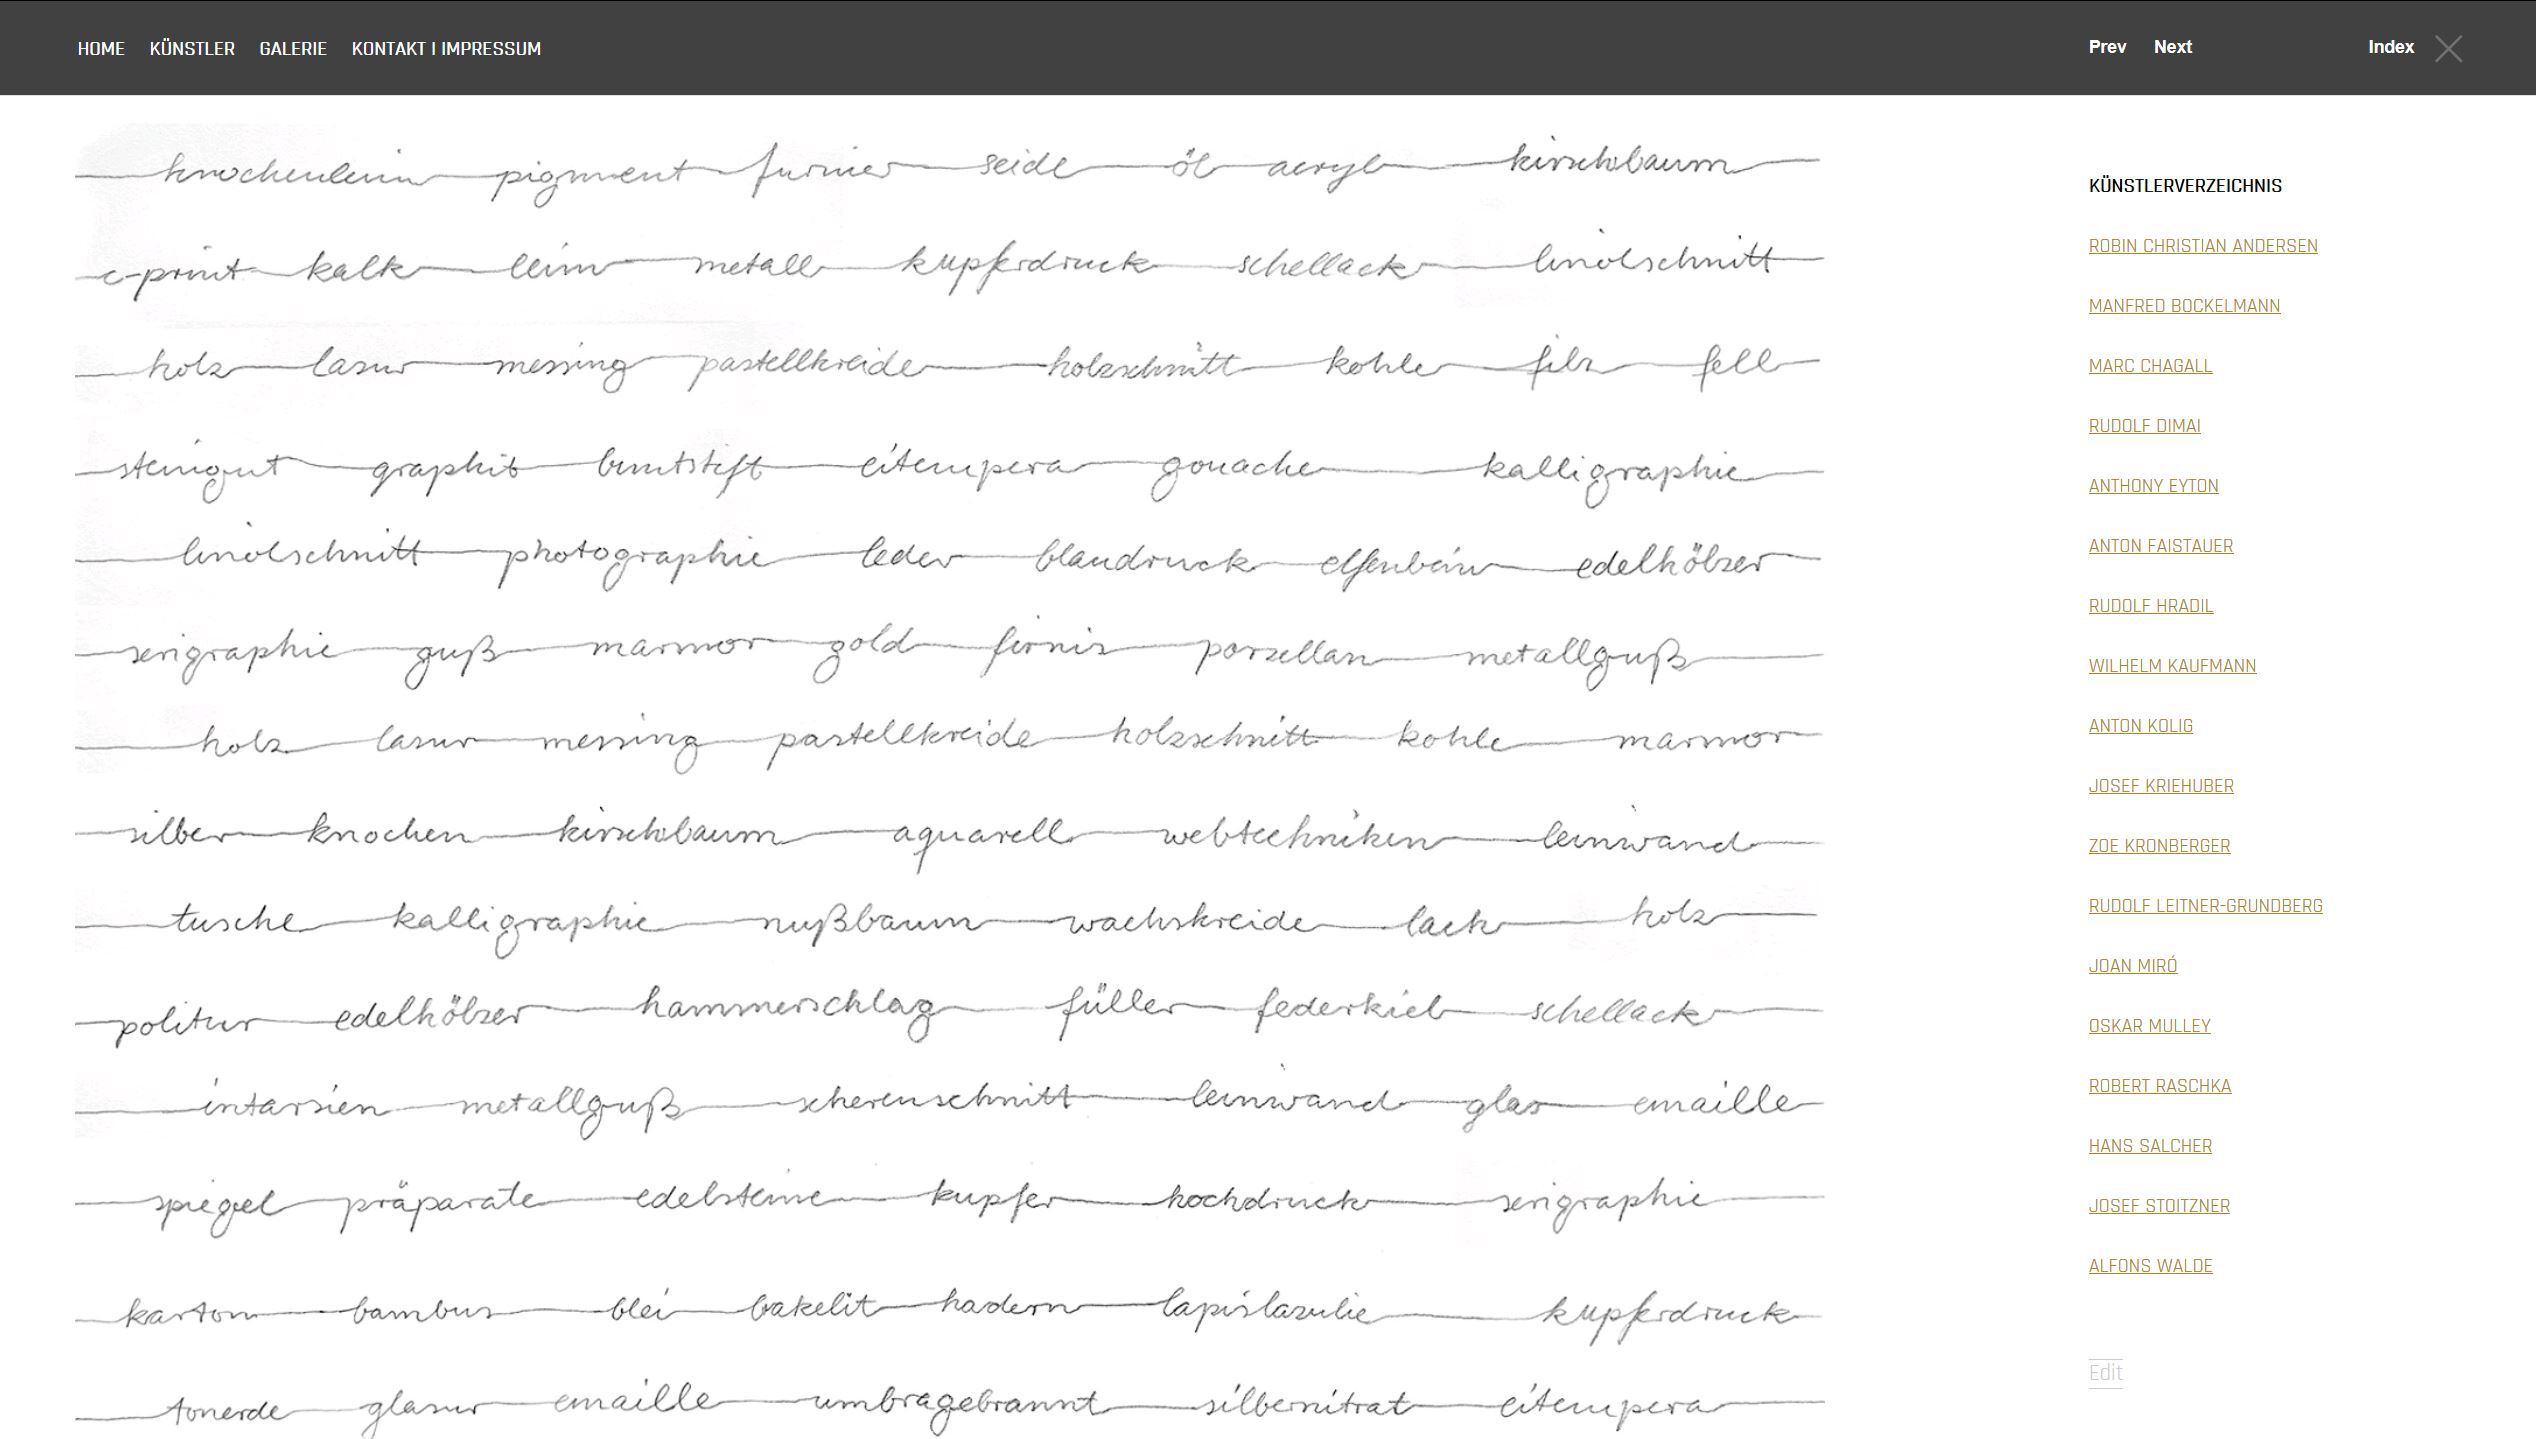 HOME KÜNSTLER GALERIE KONTAKT I IMPRESSUM Prev Next Index
knochenleim pigment furnier seide öl acryl kirschbaum
c-print kalk leim metall kupferdruck schellack linolschnitt
holz lasur messing pastellkreide holzschnitt kohle filz fell
steingut graphit buntstift eitempera gouache kalligraphie
linolschnitt photographie leder blaudruck elfenbein edelhölzer
serigraphie guß marmor gold firnis porzellan metallguß
holz lasur messing pastellkreide holzschnitt kohle marmor
silber knochen kirschbaum aquarell webtechniken leinwand
tusche kalligraphie nußbaum wachskreide lack holz
politur edelhölzer hammerschlag füller federkiel schellack
intarsien metallguß scherenschnitt leinwand glas emaille
spiegel präparate edelsteine kupfer hochdruck serigraphie
karton bambus blei bakelit hadern lapislazulie kupferdruck
tonerde glasur emaille umbragebrannt silbernitrat eitempera
KÜNSTLERVERZEICHNIS
ROBIN CHRISTIAN ANDERSEN
MANFRED BOCKELMANN
MARC CHAGALL
RUDOLF DIMAI
ANTHONY EYTON
ANTON FAISTAUER
RUDOLF HRADIL
WILHELM KAUFMANN
ANTON KOLIG
JOSEF KRIEHUBER
ZOE KRONBERGER
RUDOLF LEITNER-GRUNDBERG
JOAN MIRÓ
OSKAR MULLEY
ROBERT RASCHKA
HANS SALCHER
JOSEF STOITZNER
ALFONS WALDE
Edit